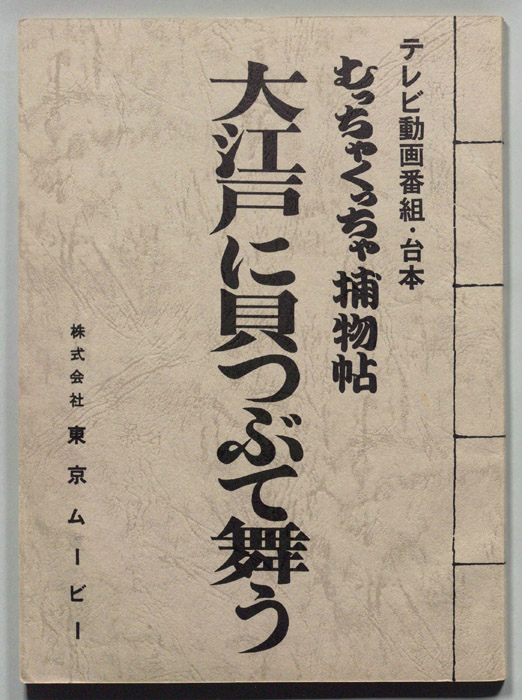 テレビ動画番組・台本
むっちゃくっちゃ捕物帖
大江戸に貝つぶて舞う
株式会社 東京ムービー